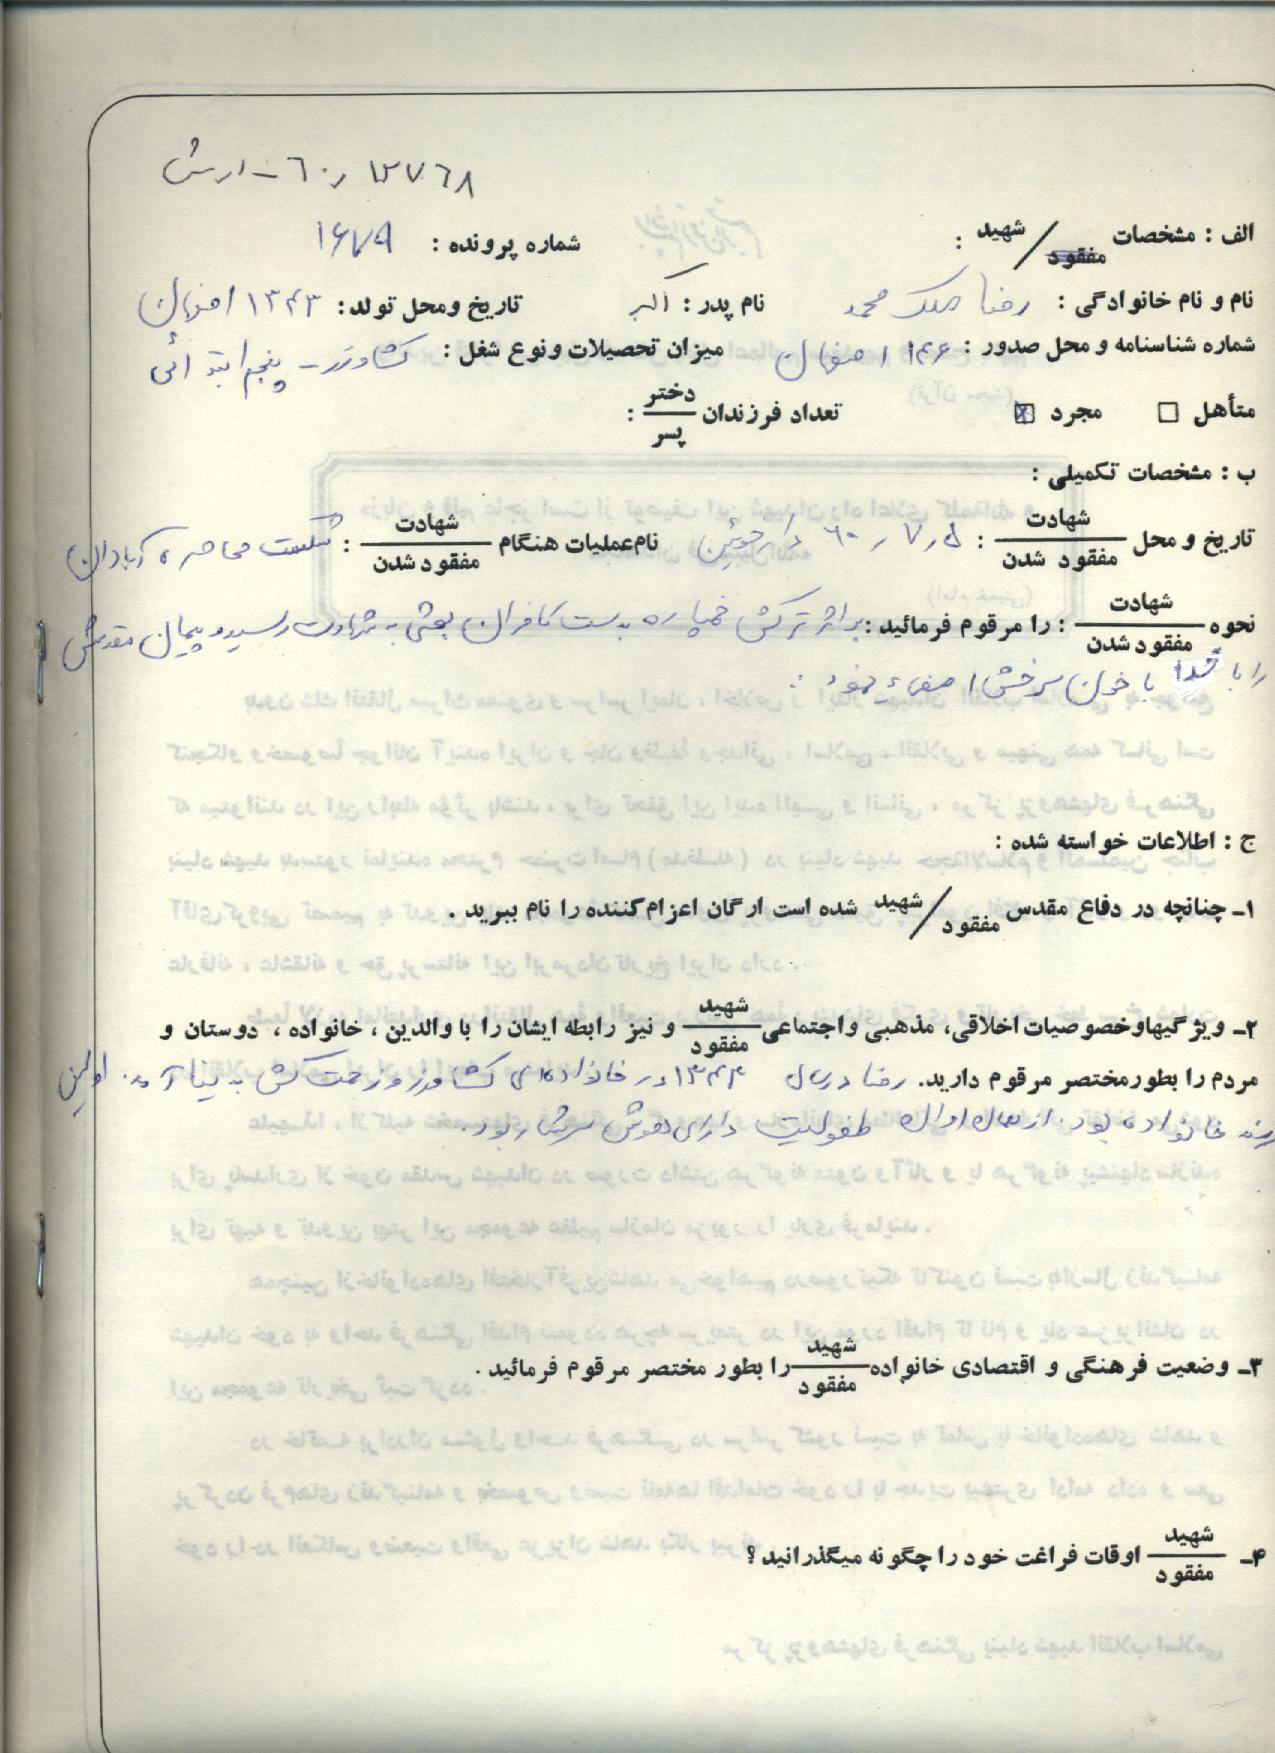 ۱۳۷۶۸ ر ۶۰ - ارتش
الف : مشخصات شهید / مفقود : شماره پرونده : ۱۶۷۹
نام و نام خانوادگی : رضا ملک محمد نام پدر : اکبر تاریخ ومحل تولد : ۱۳۴۳ اصفهان
شماره شناسنامه و محل صدور : ۱۴۶ اصفهان میزان تحصیلات ونوع شغل : کشاورز - پنجم ابتدائی
متأهل □ مجرد ☒ تعداد فرزندان دختر / پسر :
ب : مشخصات تکمیلی :
تاریخ و محل شهادت / مفقود شدن : ۵ ر ۷ ر ۶۰ دارخوئین نام‌عملیات هنگام شهادت / مفقود شدن : شکست محاصره آبادان
نحوه شهادت / مفقود شدن : را مرقوم فرمائید : بر اثر ترکش خمپاره بدست کافران بعثی به شهادت رسید و پیمان مقدسش
را با خدا با خون سرخش امضاء نمود .
ج : اطلاعات خواسته شده :
۱ـ چنانچه در دفاع مقدس شهید / مفقود شده است ارگان اعزام‌کننده را نام ببرید .
۲ـ ویژگیهاوخصوصیات اخلاقی، مذهبی واجتماعی شهید / مفقود و نیز رابطه ایشان را با والدین ، خانواده ، دوستان و
مردم را بطورمختصر مرقوم دارید. رضا در سال ۱۳۴۳ در خانواده‌ای کشاورز و زحمت کش به دنیا آمد. اولین
فرزند خانواده بود. از همان اوان طفولیت دارای هوش سرشار بود.
۳ـ وضعیت فرهنگی و اقتصادی خانواده شهید / مفقود را بطور مختصر مرقوم فرمائید .
۴ـ شهید / مفقود اوقات فراغت خود را چگونه میگذرانید ؟